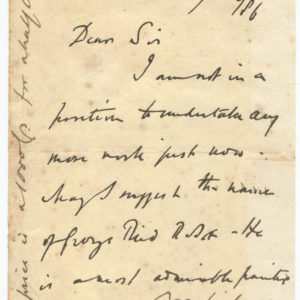 /86
Dear Sir
I am not in a
position to undertake any
more work just now -
May I suggest the name
of George Reid R.S.A - He
is a most admirable painter
price is a 1000 for a half